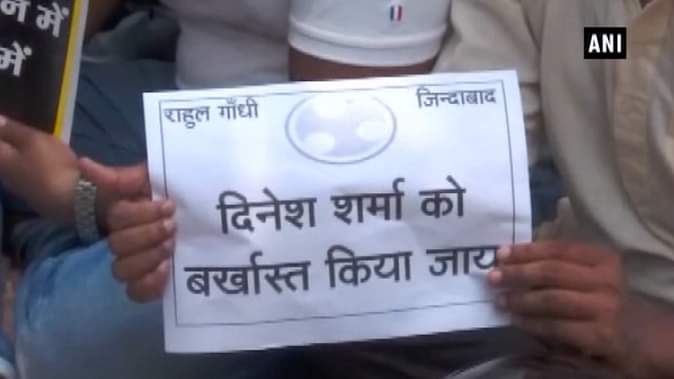 ANI
न में
में
राहुल गाँधी जिन्दाबाद
दिनेश शर्मा को
बर्खास्त किया जाय